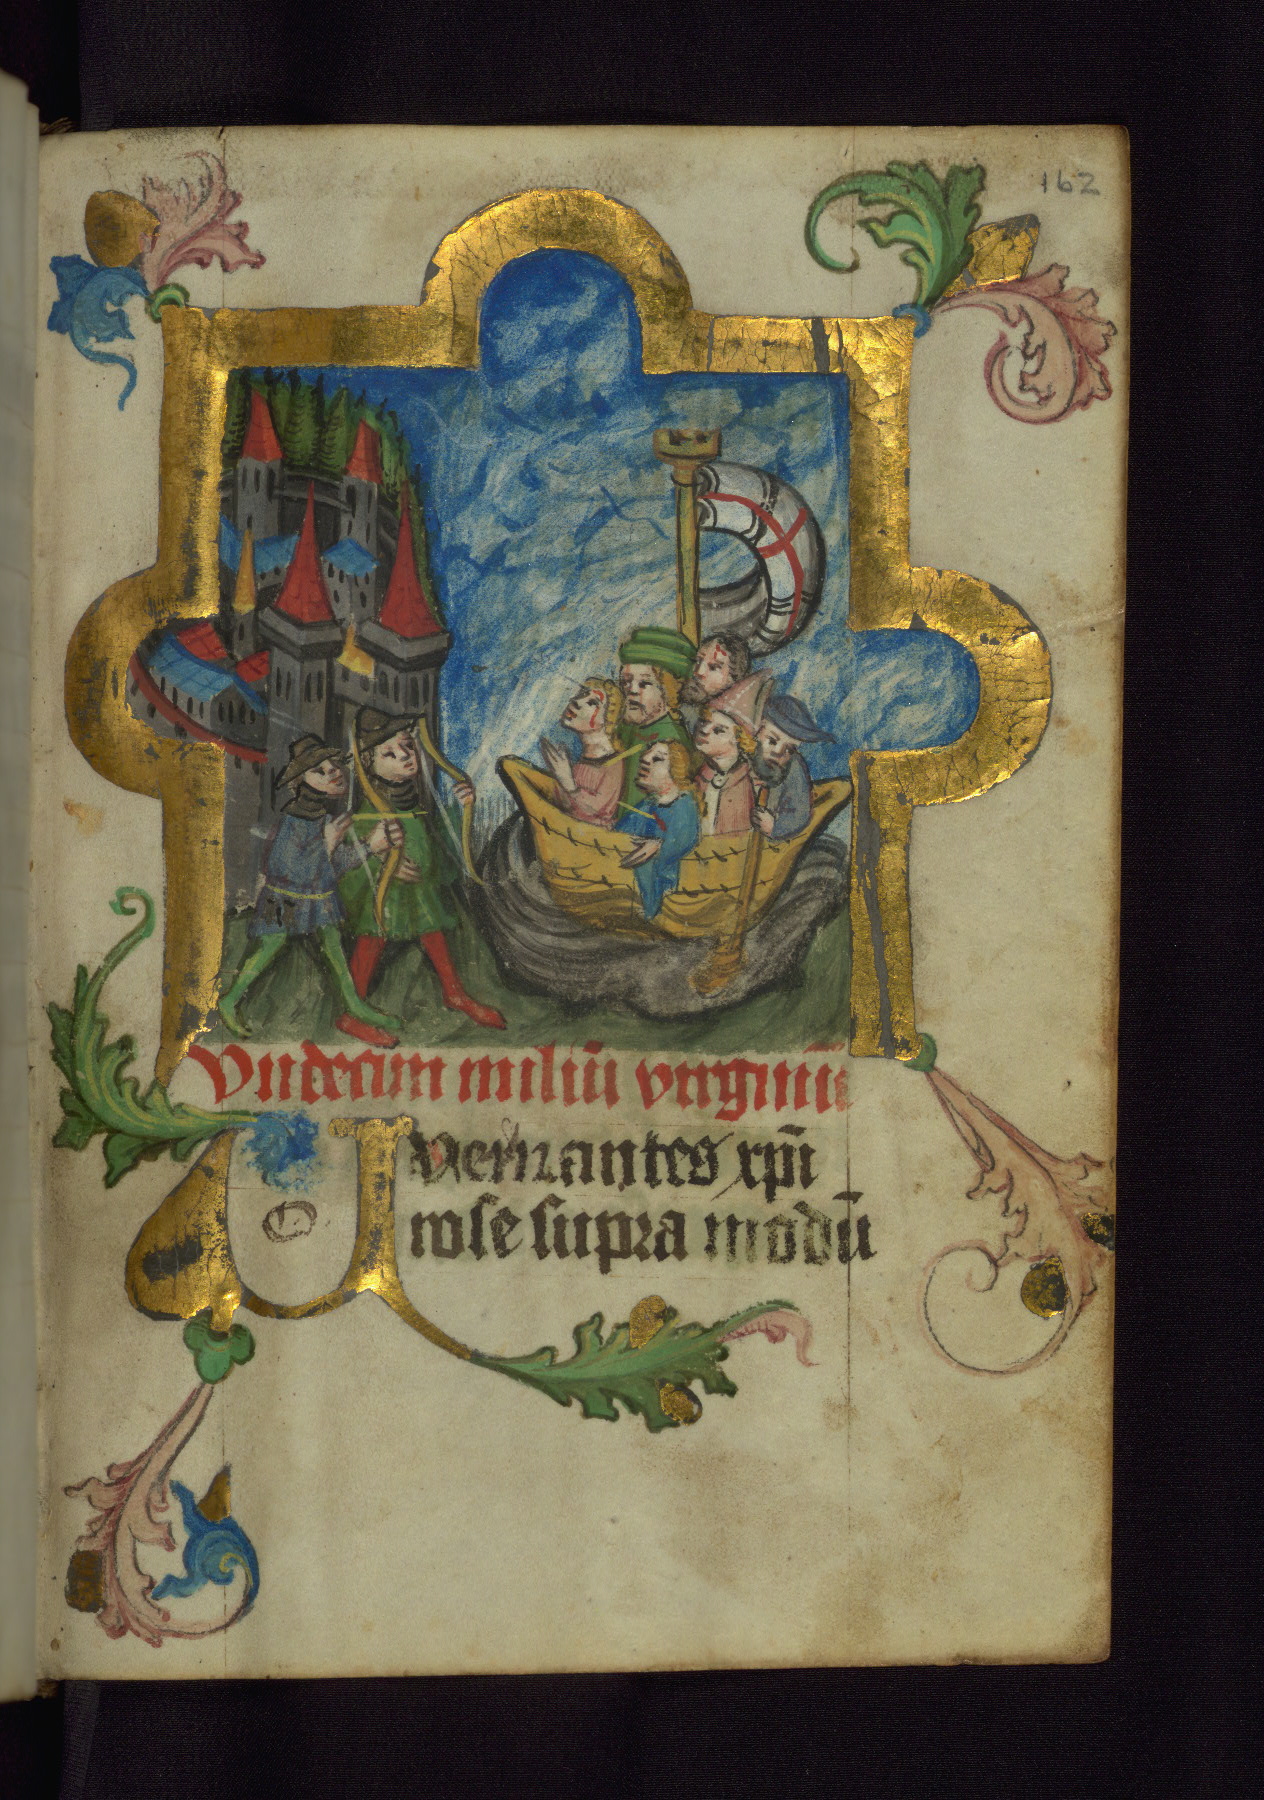 162
Undecim miliū virginū
O vernantes xp̄i
rose supra modū